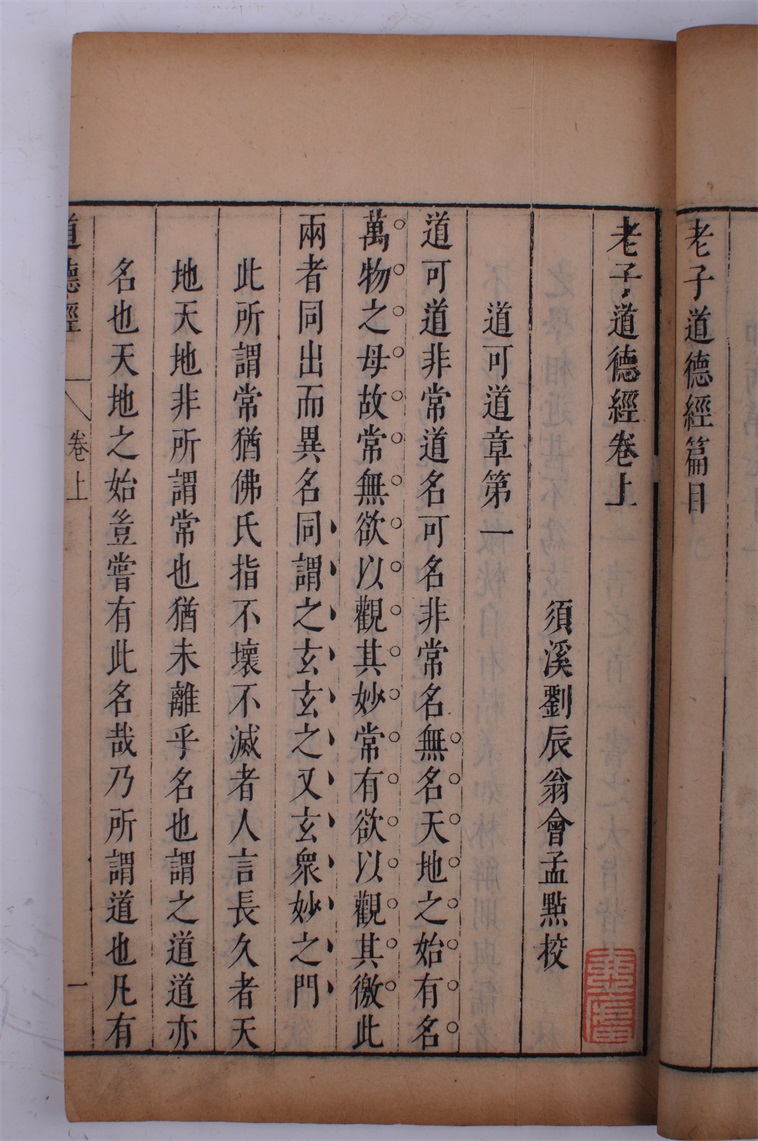 老子道德經篇目
老子道德經卷上
須溪劉辰翁會孟點校
道可道章第一
道可道非常道名可名非常名無名天地之始有名
萬物之母故常無欲以觀其妙常有欲以觀其徼此
兩者同出而異名同謂之玄玄之又玄衆妙之門
此所謂常猶佛氏指不壞不滅者人言長久者天
地天地非所謂常也猶未離乎名也謂之道道亦
名也天地之始豈嘗有此名哉乃所謂道也凡有
道德經
卷上
一